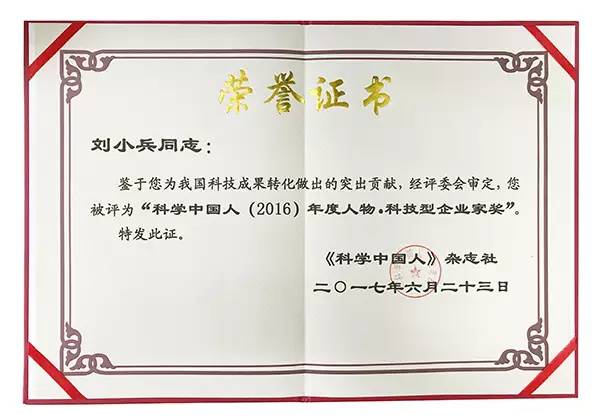 荣誉证书
刘小兵同志：
鉴于您为我国科技成果转化做出的突出贡献，经评委会审定，您
被评为“科学中国人（2016）年度人物·科技型企业家奖”。
特发此证。
《科学中国人》杂志社
二〇一七年六月二十三日